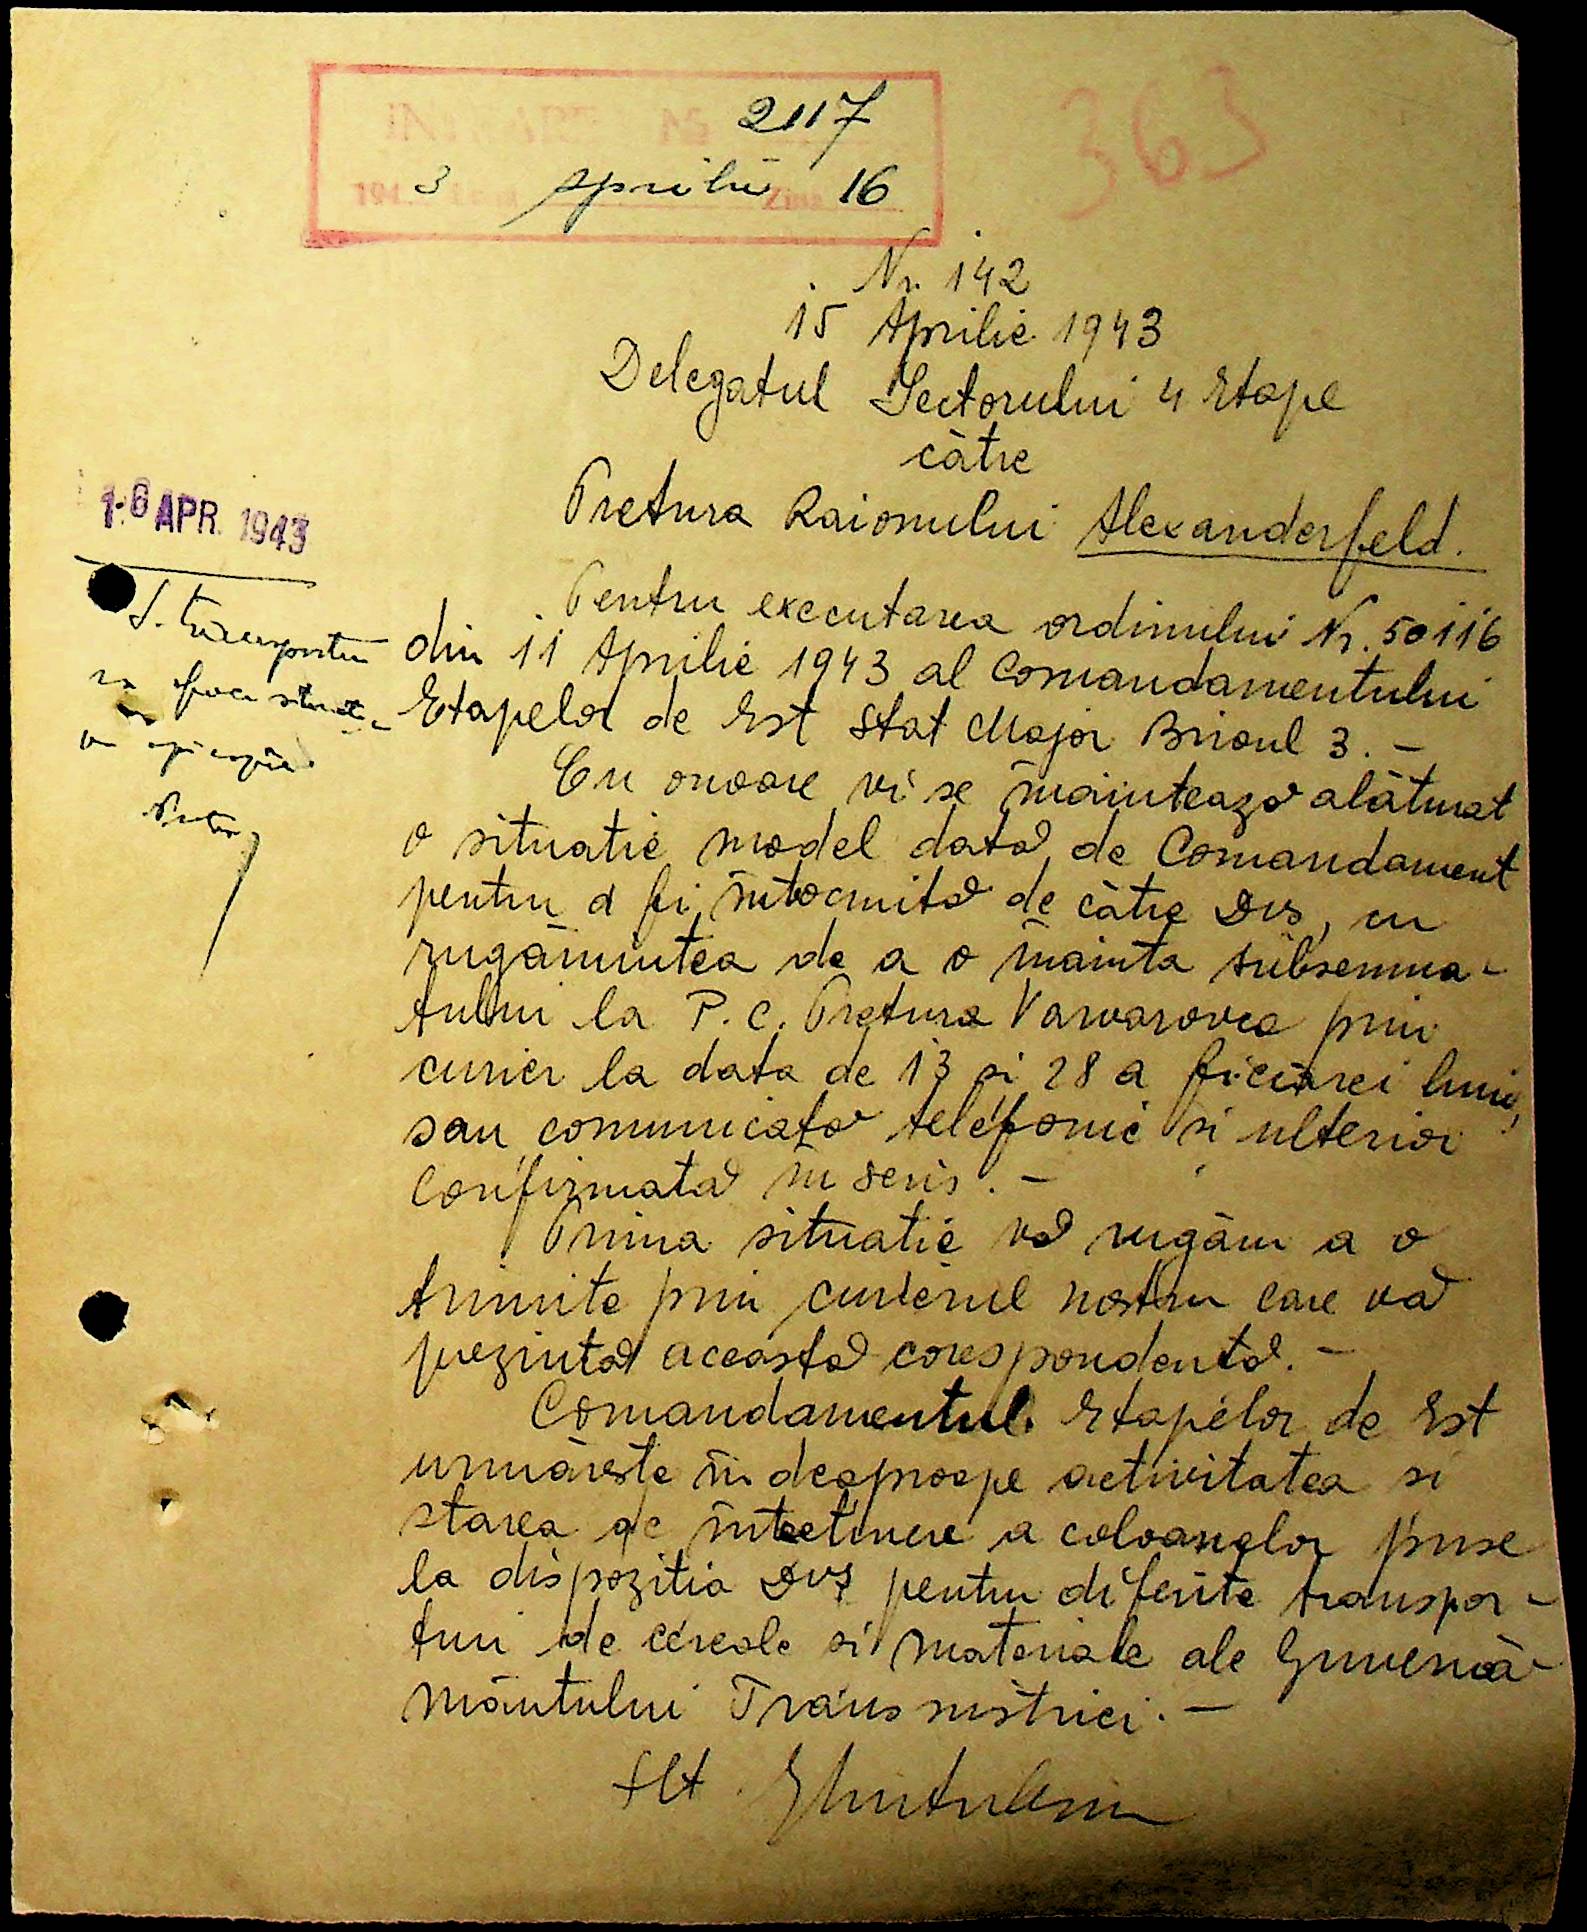 2117
194 3 Aprilie Ziua 16
363
Nr. 142
15 Aprilie 1943
Delegatul Sectorului 4 Etape
către
Pretura Raionului Alexanderfeld.
16 APR. 1943
S. transporturi
va face situația
Pretor
Pentru executarea ordinului Nr. 50116
din 11 Aprilie 1943 al Comandamentului
Etapelor de Est Stat Major Biroul 3. -
Cu onoare vi se înaintează alăturat
o situatie model dată de Comandament
pentru a fi întocmită de către Dvs, cu
rugămintea de a o înainta subsemna-
tului la P. C. Pretura Varvarovca prin
curier la data de 13 si 28 a fiecărei luni,
sau comunicată telefonic si ulterior
confirmată în scris. -
Prima situatie vă rugăm a o
trimite prin curierul nostru care vă
prezintă această corespondentă. -
Comandamentul Etapelor de Est
urmăreste în deaproape activitatea si
starea de întretinere a coloanelor puse
la dispozitia Dvs pentru diferite transpor-
turi de cereale si materiale ale Guvernă-
mântului Transnistriei. -
Slt